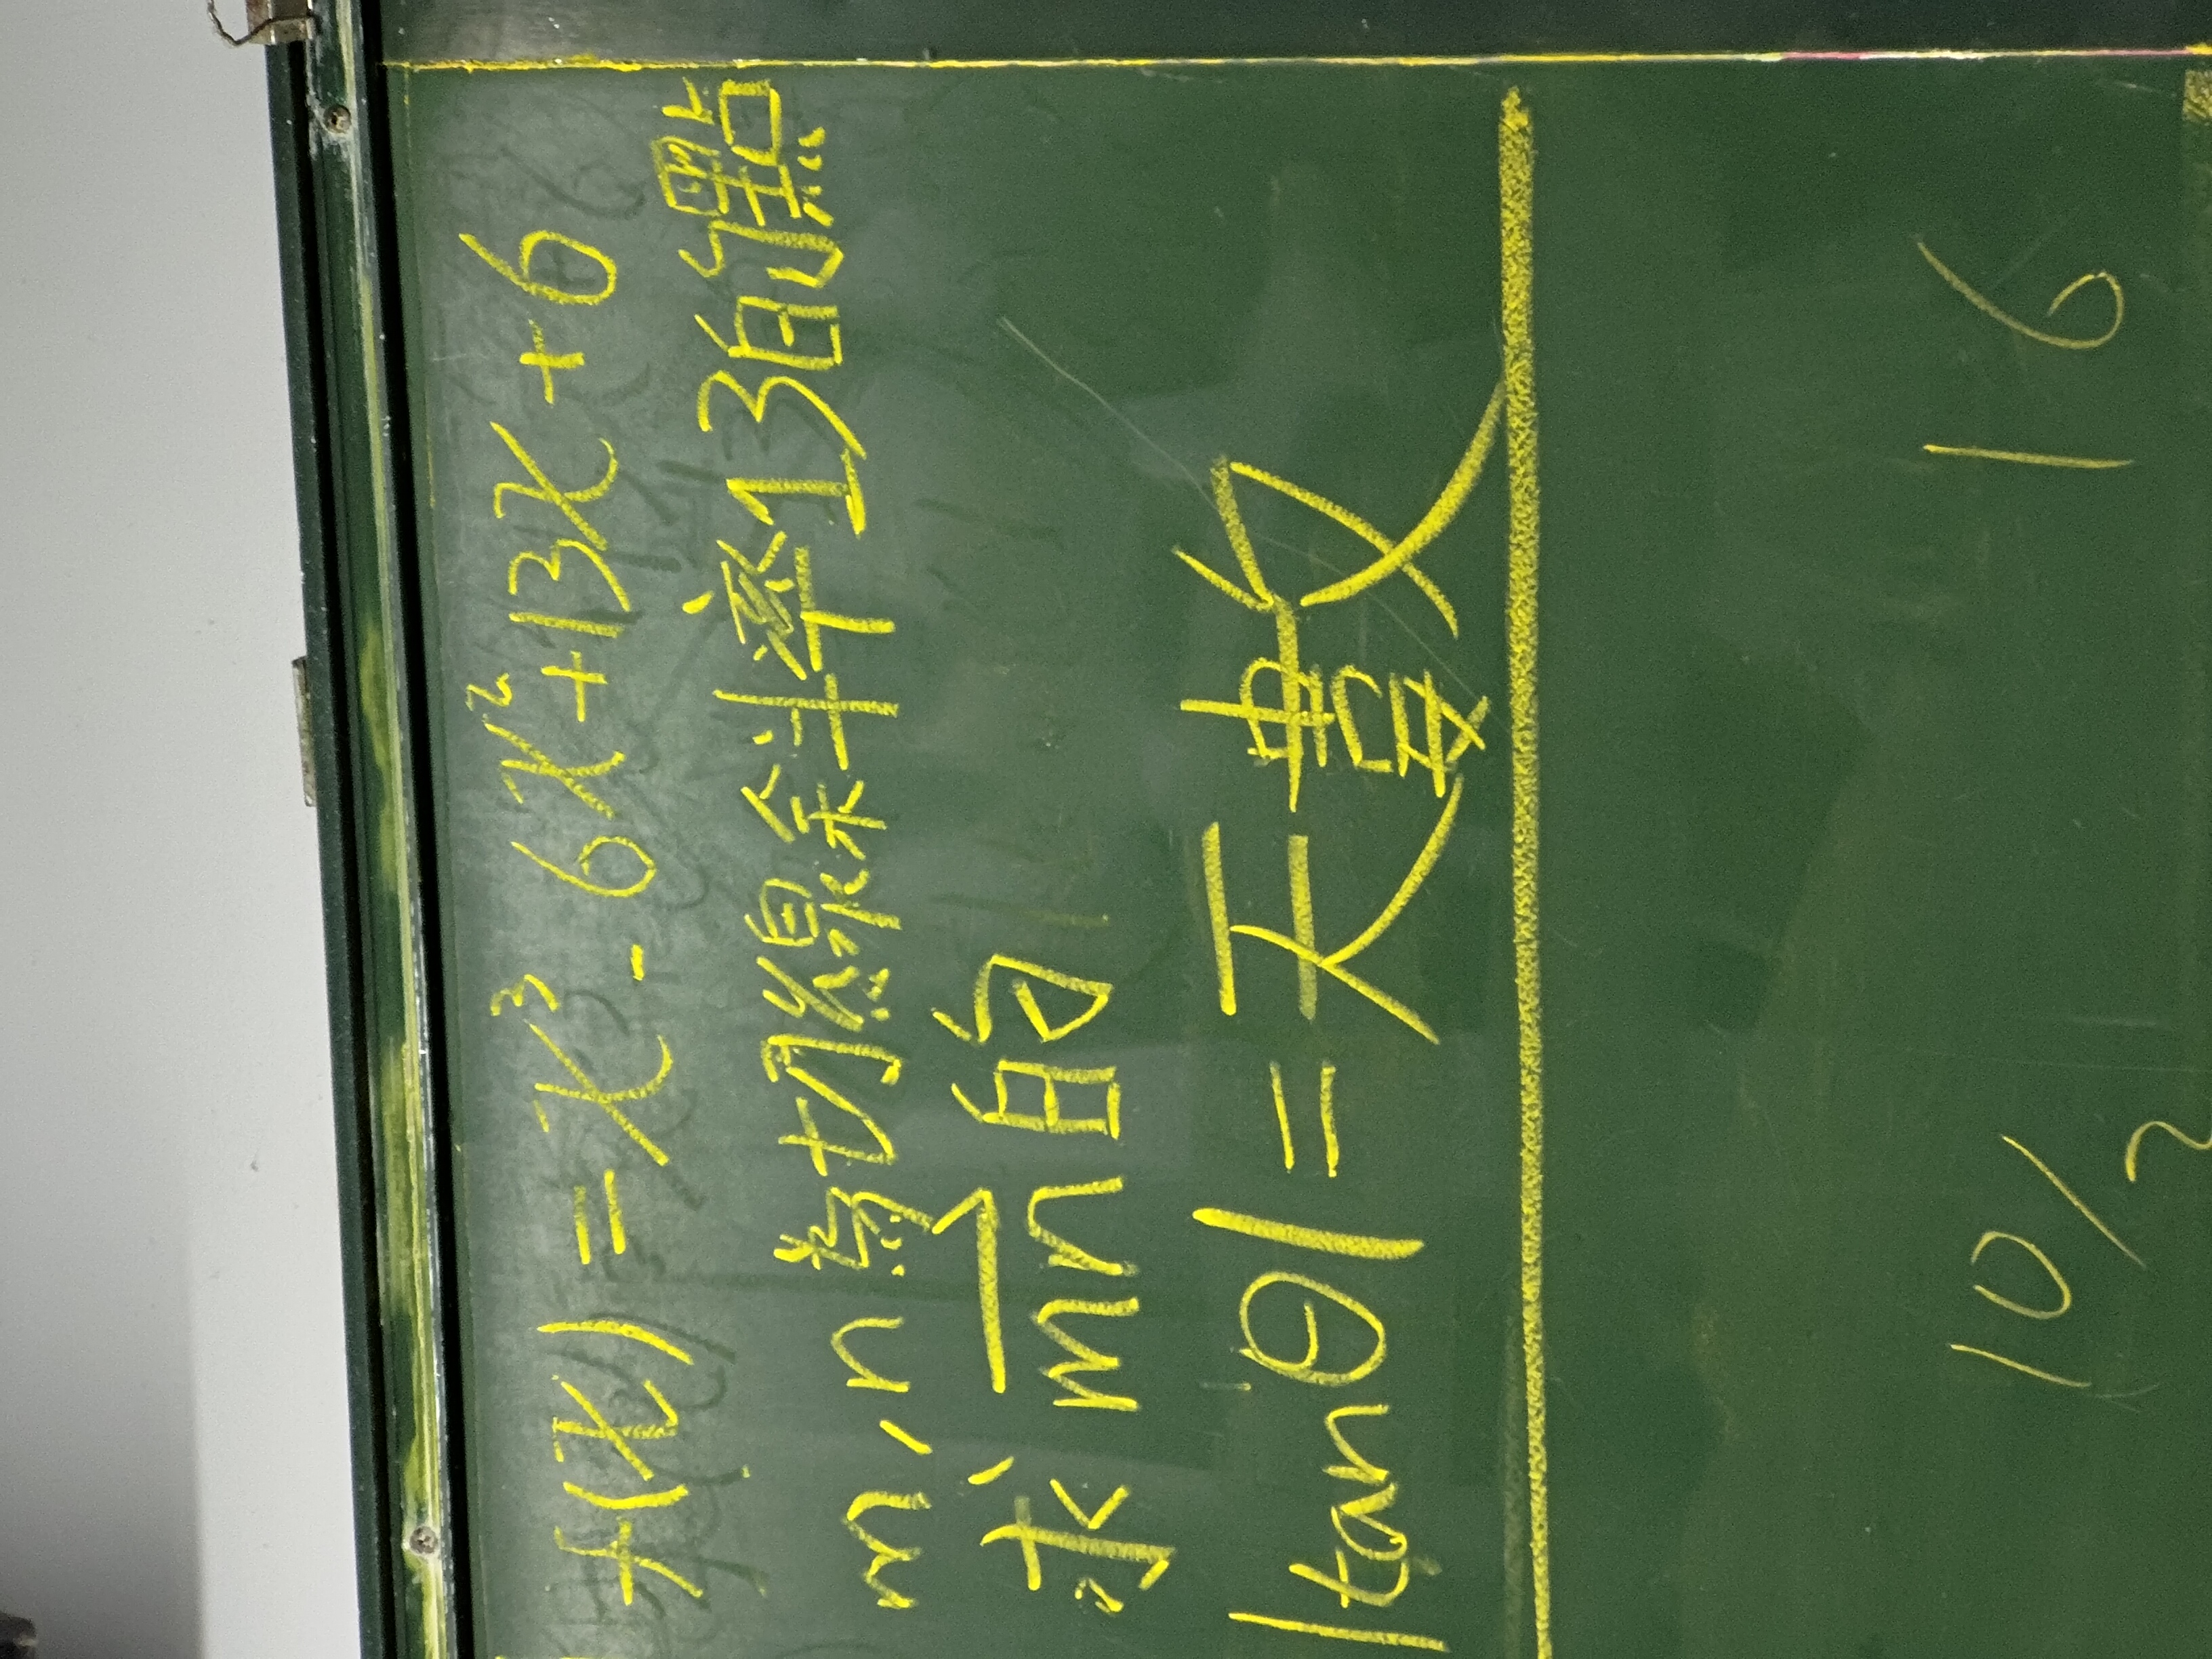 f(x) = x³ - 6x² + 13x + 6
m, n為切線斜率13的點
求 mn 的
|tanθ| = 天數
10/2 16